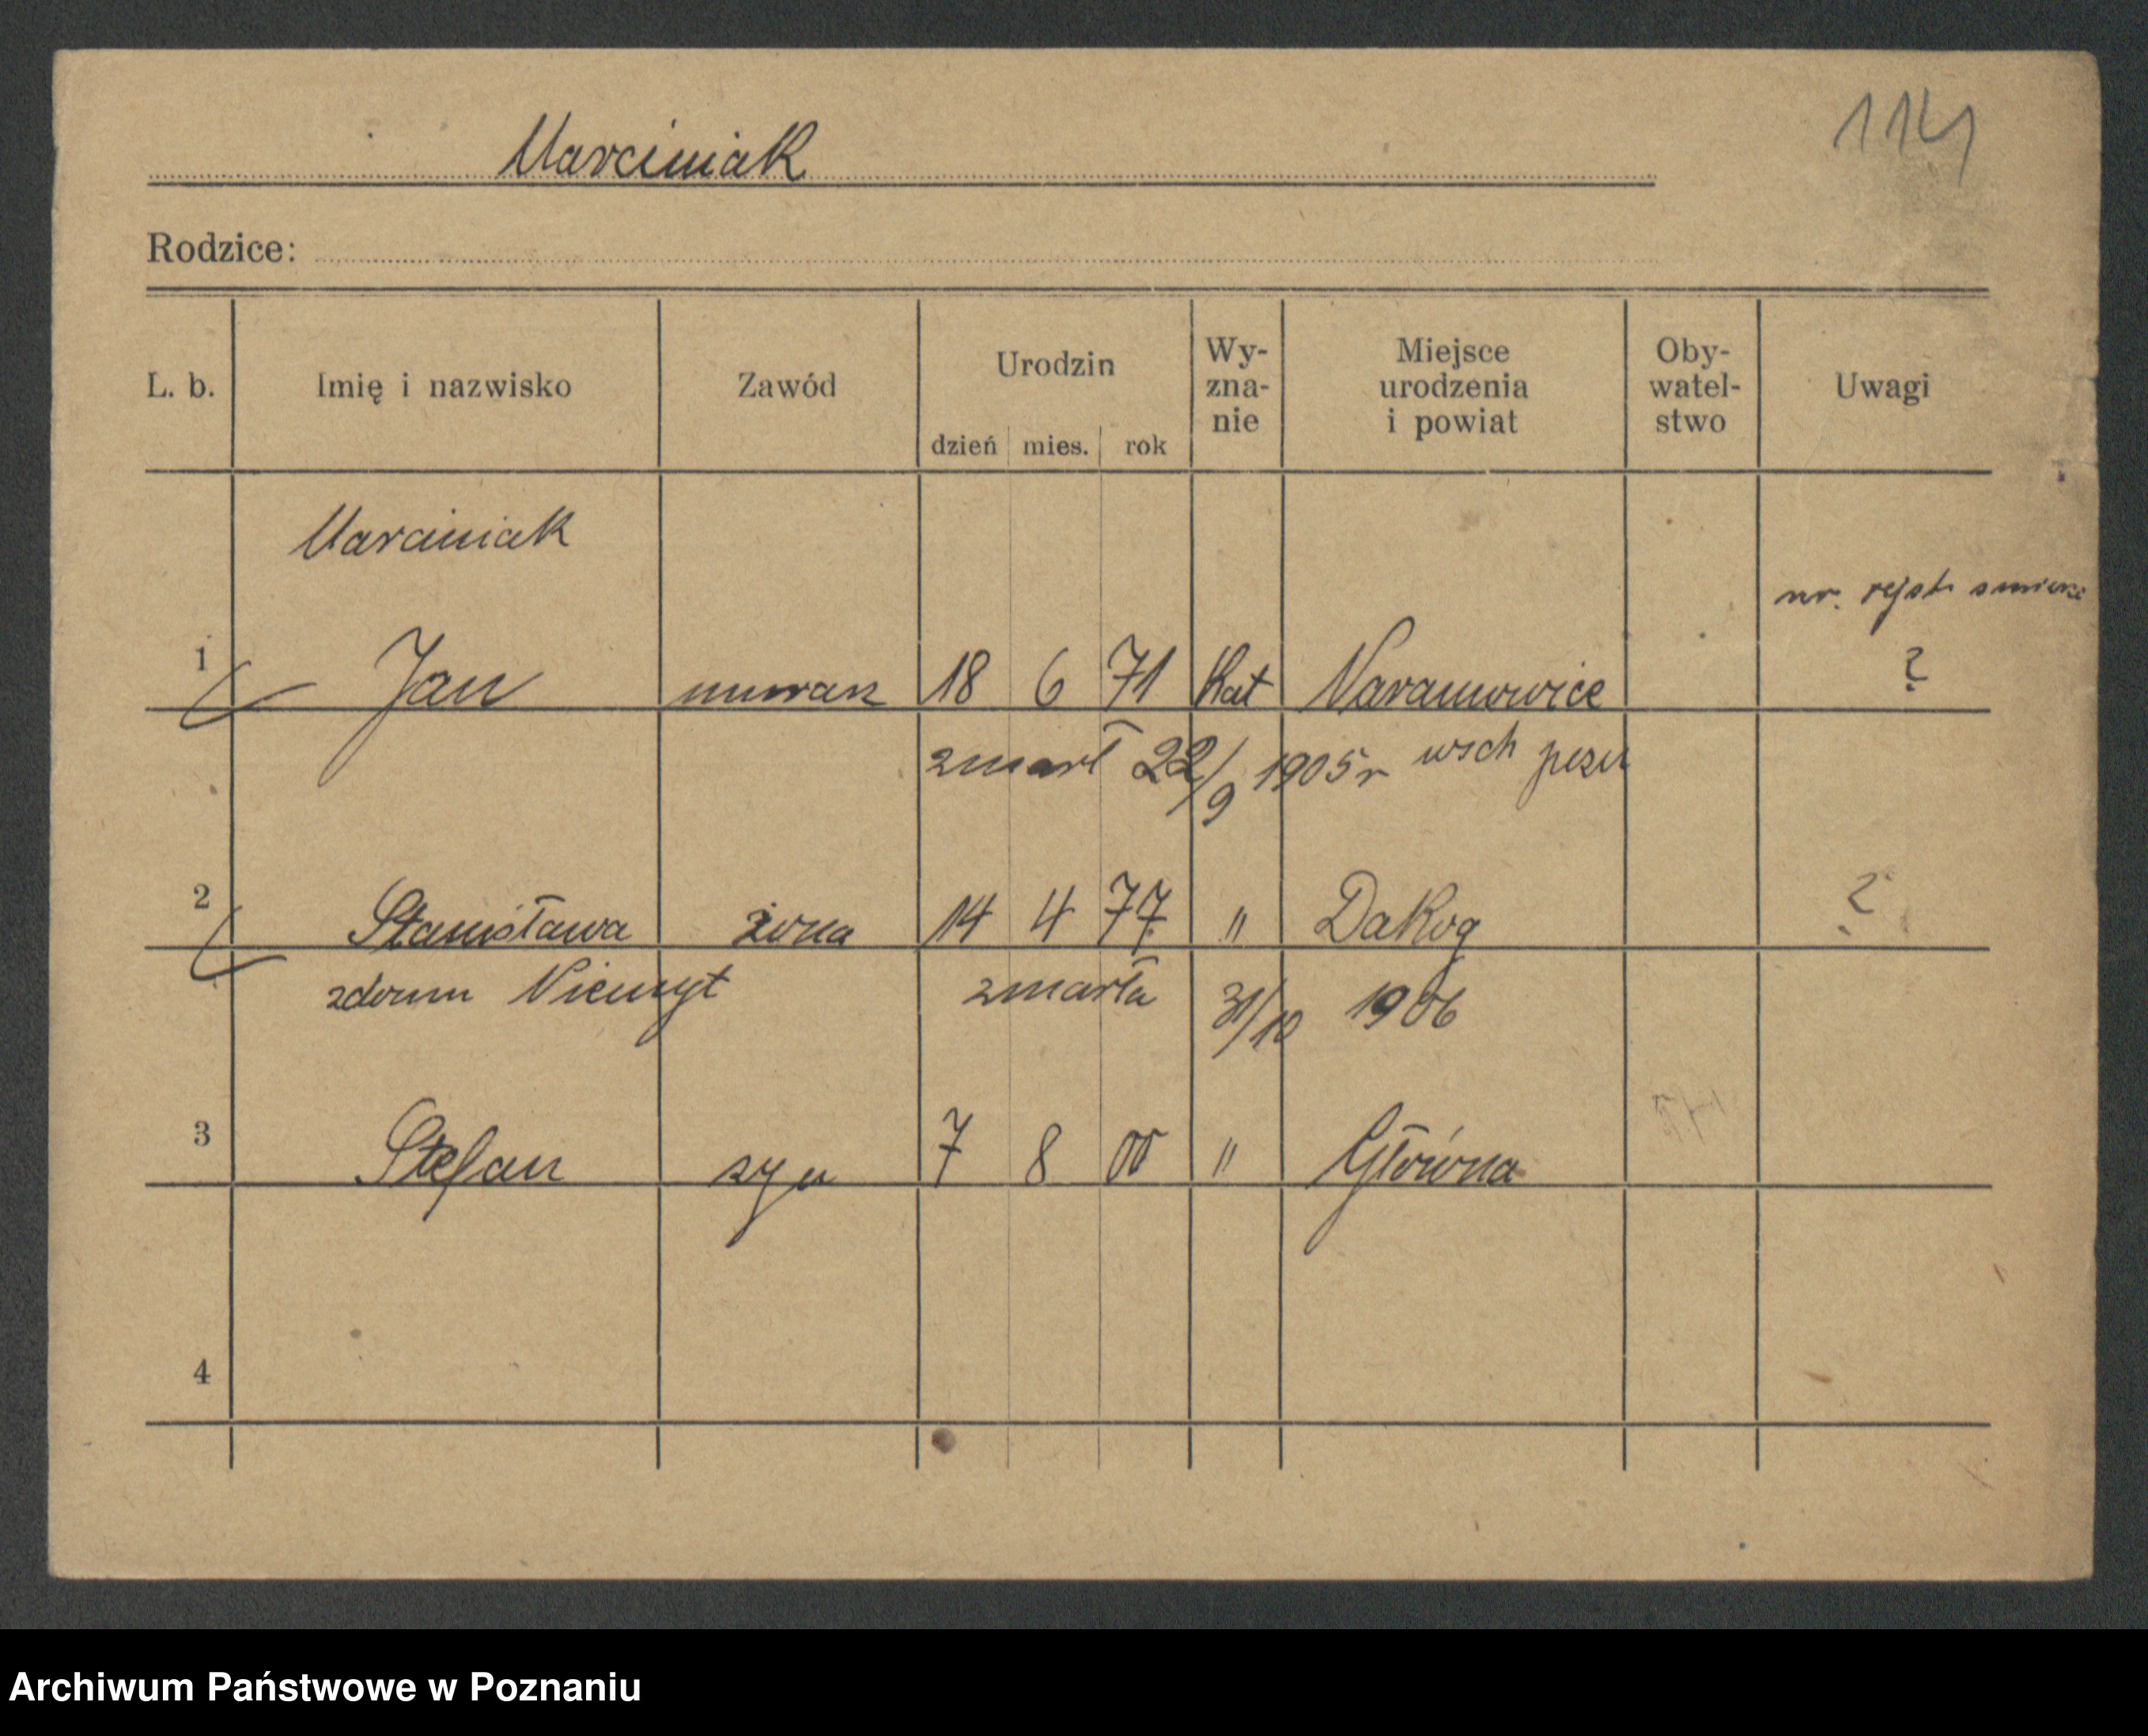 114
Marciniak
Rodzice:
L. b. Imię i nazwisko Zawód Urodzin dzień mies. rok Wy-zna-nie Miejsce urodzenia i powiat Oby-watel-stwo Uwagi
Marciniak
nr. rejstr
1 Jan murarz 18 6 71 Kat Naramowice ?
zmarł 22/9 1905 r wsch
2 Stanisława żona 14 4 77 " Dakog ?
zdomu zmarła 31/10 1906
3 Stefan syn 7 8 00 " Główna
4
Archiwum Państwowe w Poznaniu